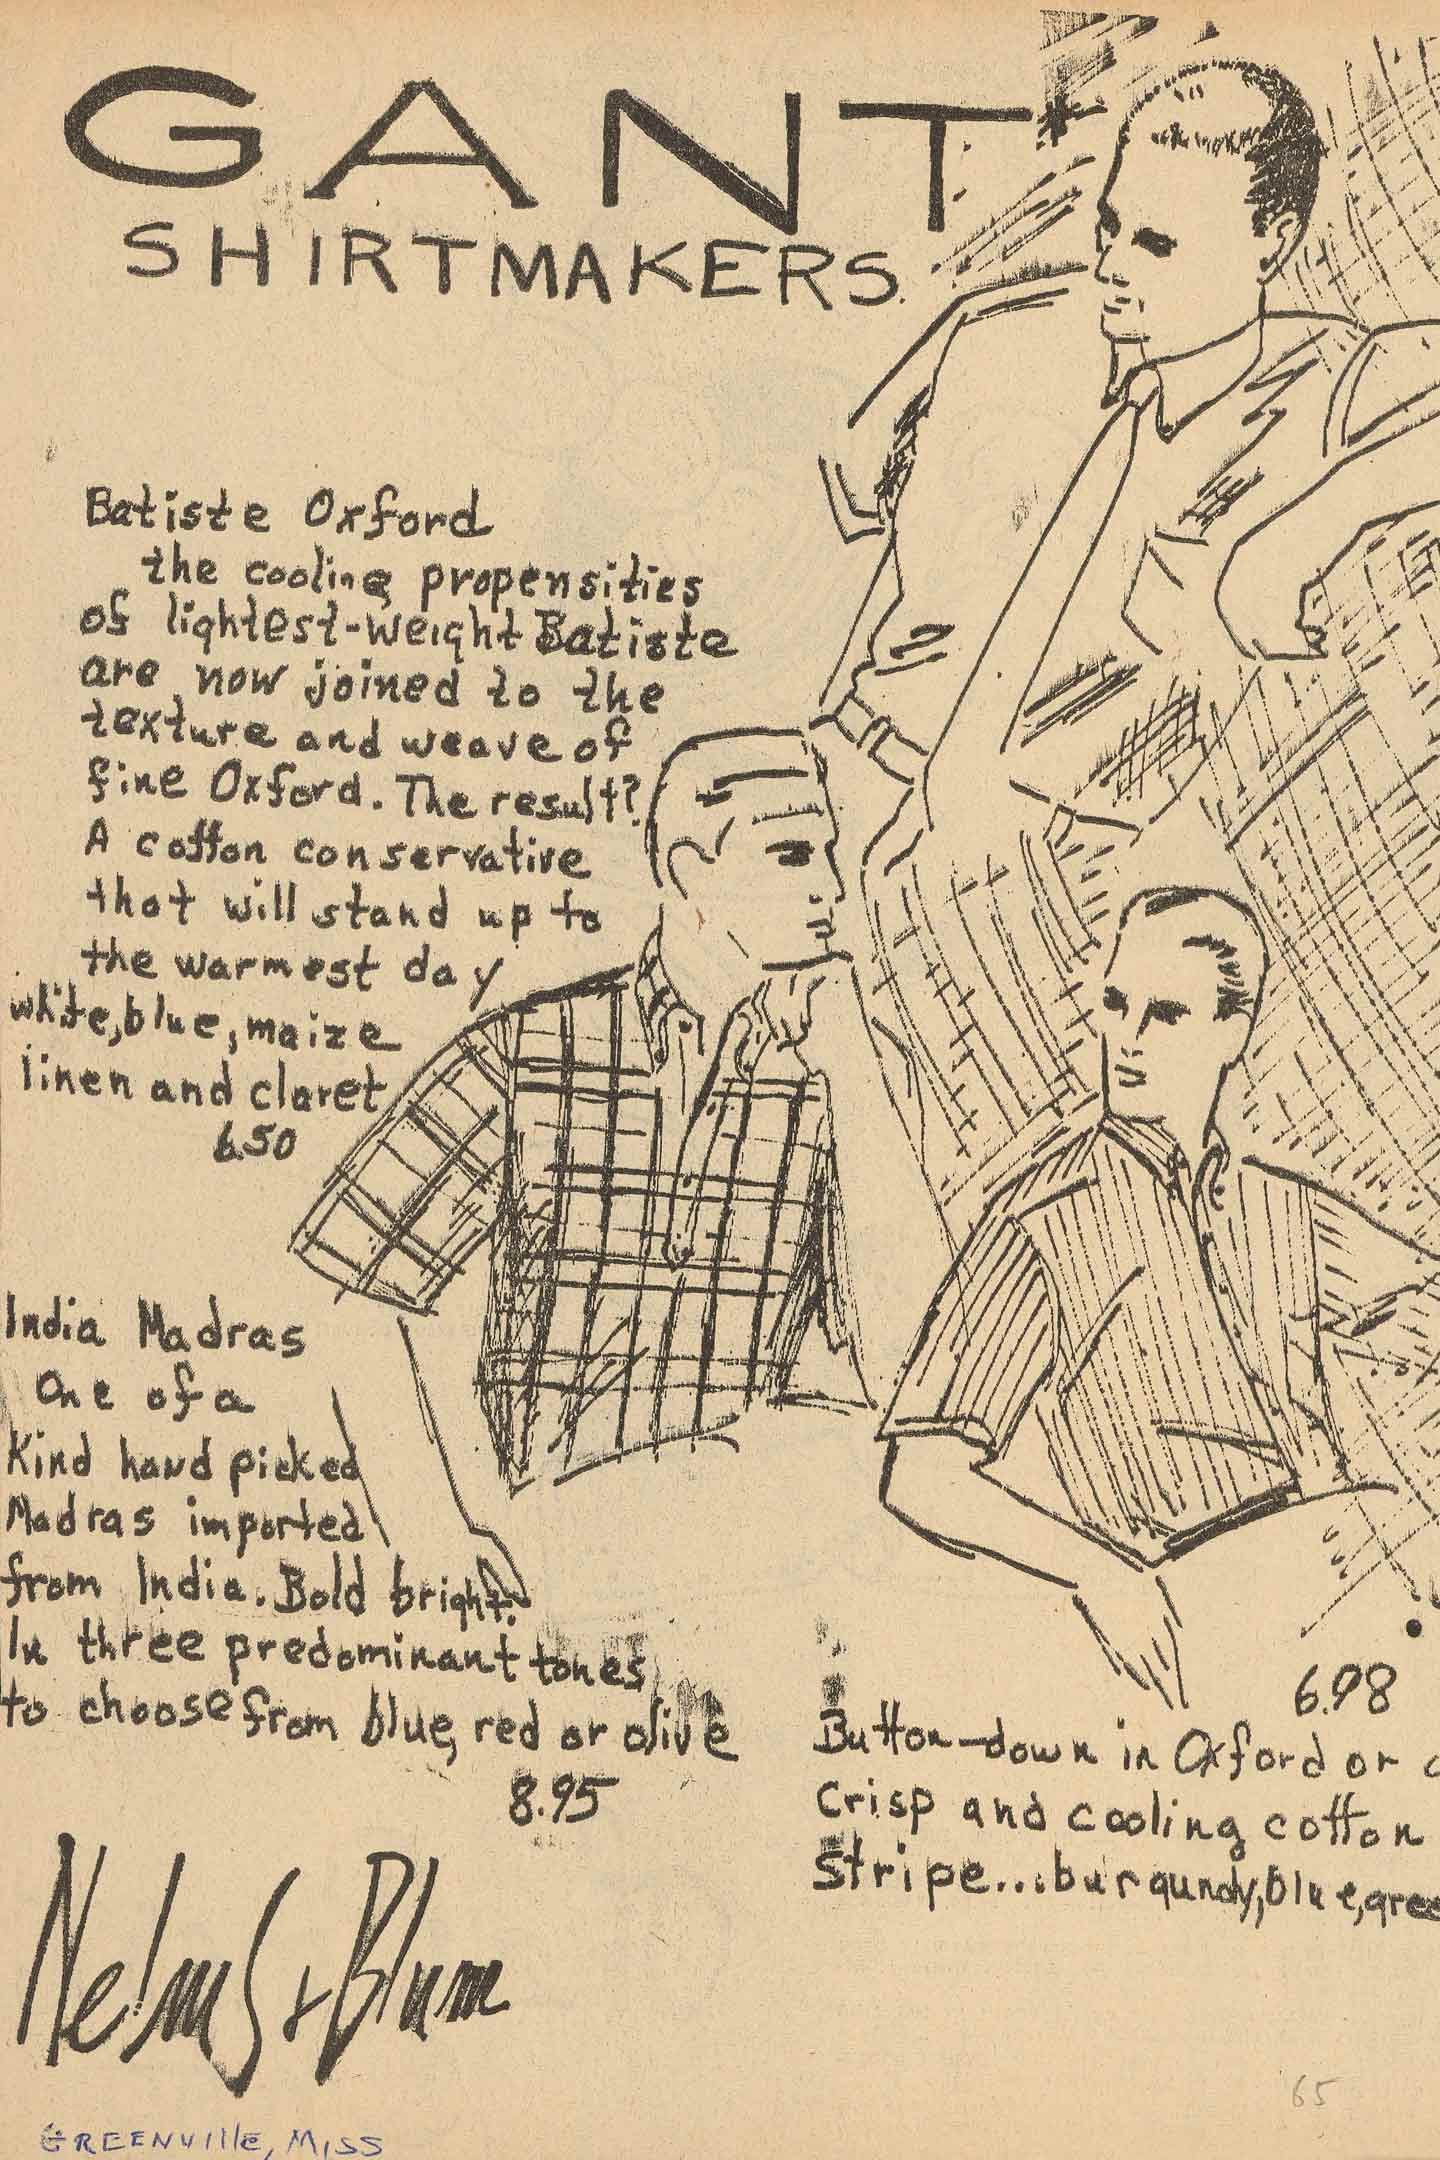 GANT
SHIRTMAKERS.
Batiste Oxford
the cooling propensities
of lightest-weight Batiste
are now joined to the
texture and weave of
fine Oxford. The result?
A cotton conservative
that will stand up to
the warmest day
white, blue, maize
linen and claret
6.50
India Madras
One of a
Kind hand picked
Madras imported
from India. Bold bright.
In three predominant tones
to choose from blue, red or olive
8.95
6.98
Button-down in Oxford or
Crisp and cooling cotton
Stripe...burgundy, blue,
Nelms + Blum
GREENVIlle, MISS
65